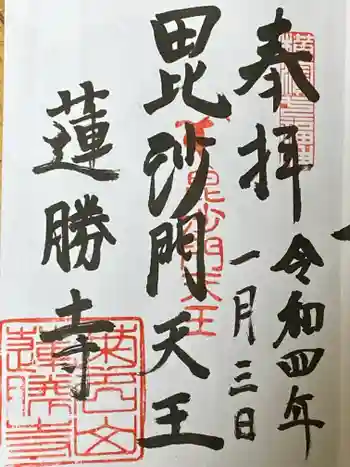 奉拝
令和四年
一月三日
毘沙門天王
毘沙門天王
蓮勝寺